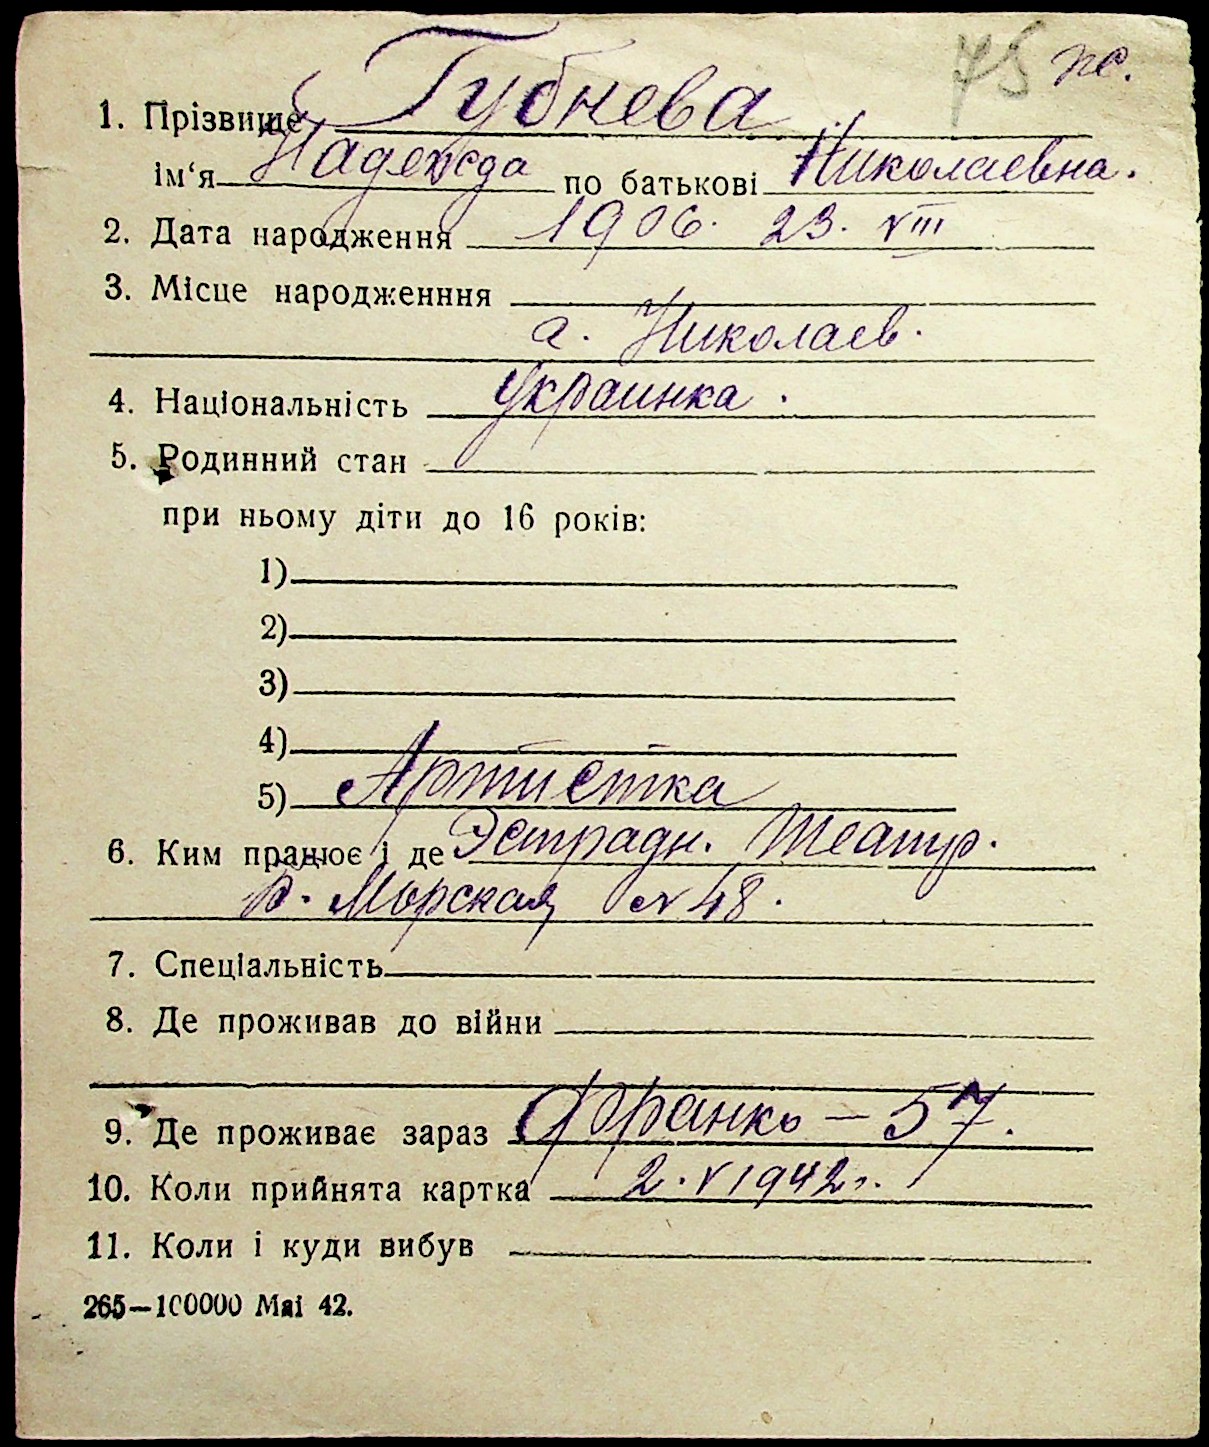 75 пс.
1. Прізвище Губнева
ім‘я Надежда по батькові Николаевна.
2. Дата народження 1906. 23. VIII
3. Місце народженння
г. Николаев.
4. Національність Украинка.
5. Родинний стан
при ньому діти до 16 років:
1)
2)
3)
4)
5) Артистка
6. Ким працює і де Эстрадн. театр.
Б. Морская № 48.
7. Спеціальність
8. Де проживав до війни
9. Де проживає зараз Франко – 57.
10. Коли прийнята картка 2. V 1942 г.
11. Коли і куди вибув
265—100000 Маі 42.